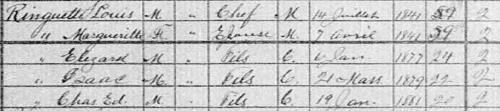 Ringuette Louis M " Chef M 14 Juillet 1841 59 2
" Marguerite F " Epouse M 7 Avril 1841 59 2
" Elzeard M " Fils C 6 Jan 1877 24 2
" Isaac M " Fils C 21 Mars 1879 22 2
" Chas Ed. M " Fils C 19 Jan 1881 20 2